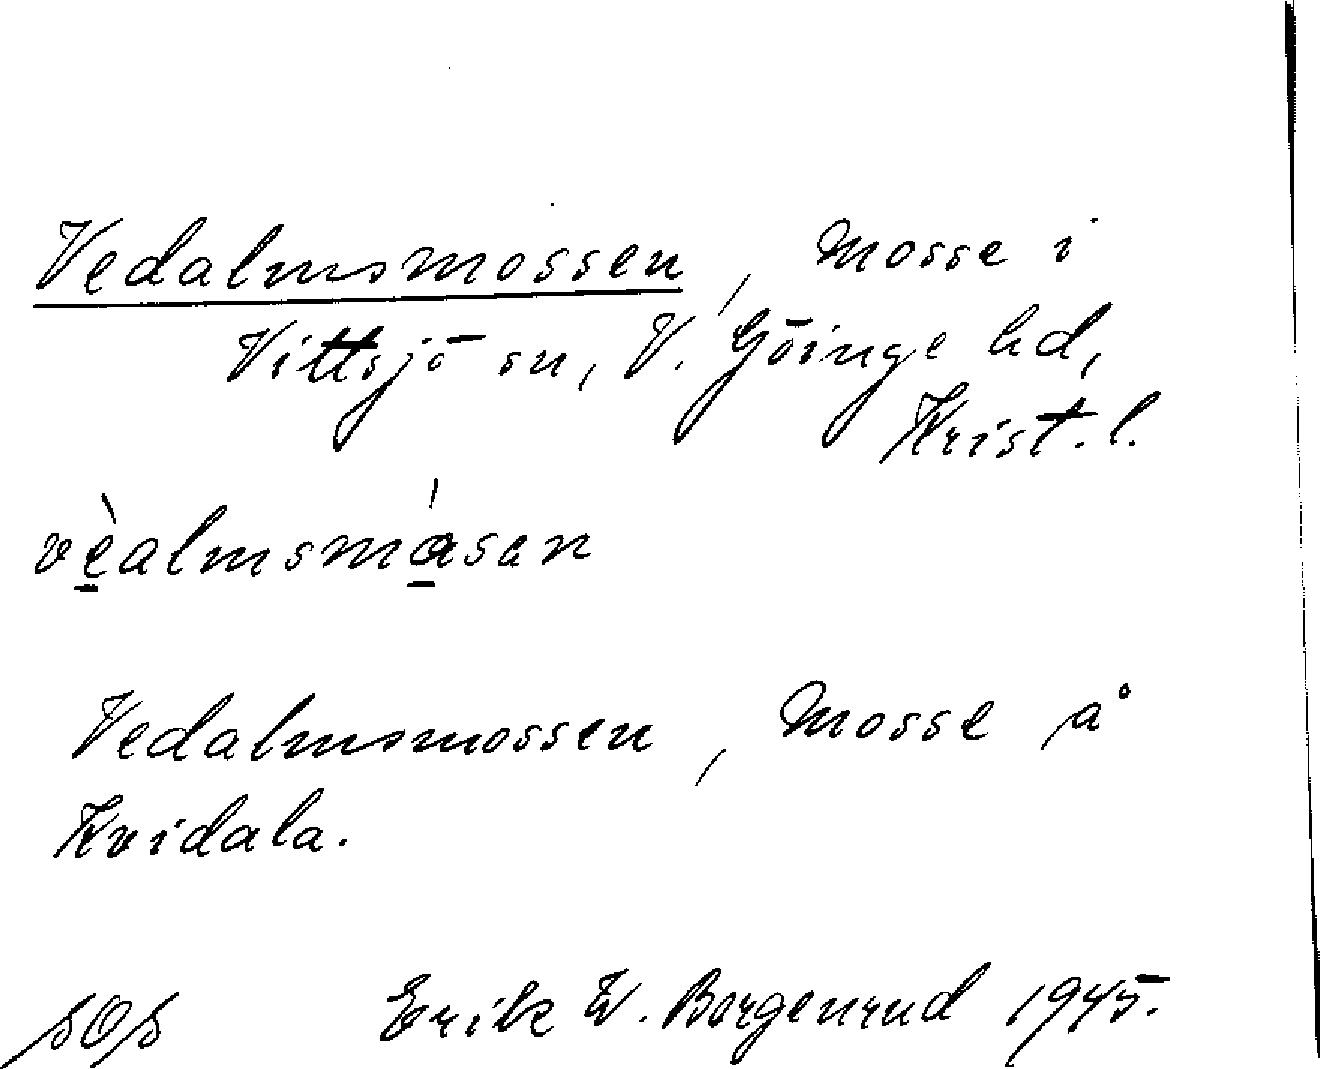 Vedalmsmossen, Mosse i
Vittsjö sn, V. Göinge hd,
Krist. l.
vèalmsmásan
Vedalmsmossen, Mosse å
Kvidala.
Erik W. Borgenrud 1945.